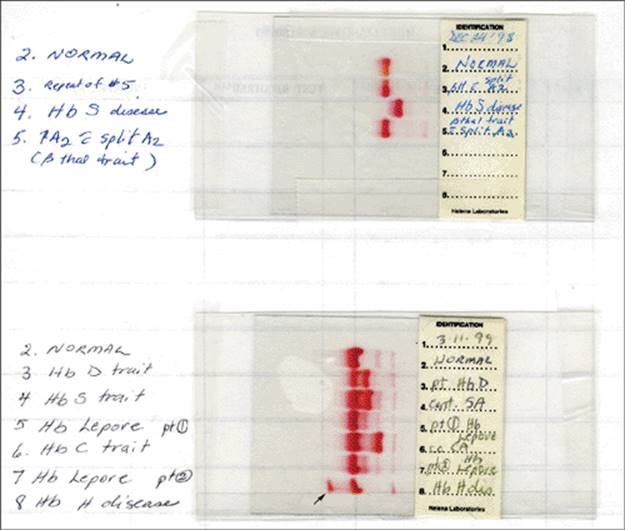 2. NORMAL
3. Repeat of #5
4. Hb S disease
5. ↑A2 c̄ split A2
(β thal trait)
IDENTIFICATION
DEC 24 '98
1.
2. NORMAL
split
3. A2
4. Hb S disease
β thal trait
5. c̄ split A2
6.
7.
8.
Helena Laboratories
2. NORMAL
3 Hb D trait
4 Hb S trait
5 Hb Lepore pt①
6. Hb C trait
7 Hb Lepore pt②
8 Hb H disease
IDENTIFICATION
1. 3-11-99
2. NORMAL
3. pt Hb D
4. cont. SA
5. pt① Hb
Lepore
6. CA
Hb
7. pt② Lepore
8. Hb H dis.
Helena Laboratories